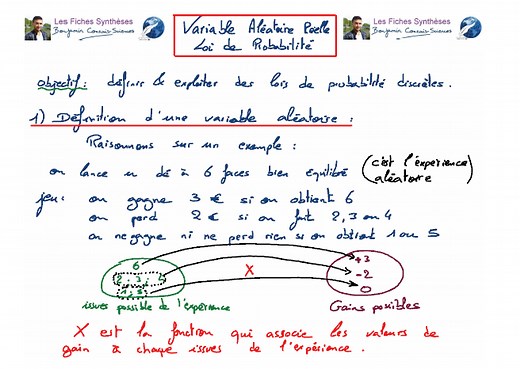 Les Fiches Synthèses
Variable Aléatoire Réelle
Loi de Probabilité
Les Fiches Synthèses
objectif: définir & exploiter des lois de probabilité discrètes.
1) Définition d'une variable aléatoire :
Raisonnons sur un exemple :
on lance un dé à 6 faces bien équilibré (c'est l'expérience
aléatoire)
jeu: on gagne 3 € si on obtient 6
on perd 2 € si on fait 2, 3 ou 4
on ne gagne ni ne perd rien si on obtient 1 ou 5
6 +3
2 ; 3 ; 4 X -2
1 ; 5 0
issues possible de l'expérience Gains possibles
X est la fonction qui associe les valeurs de
gain à chaque issues de l'expérience .